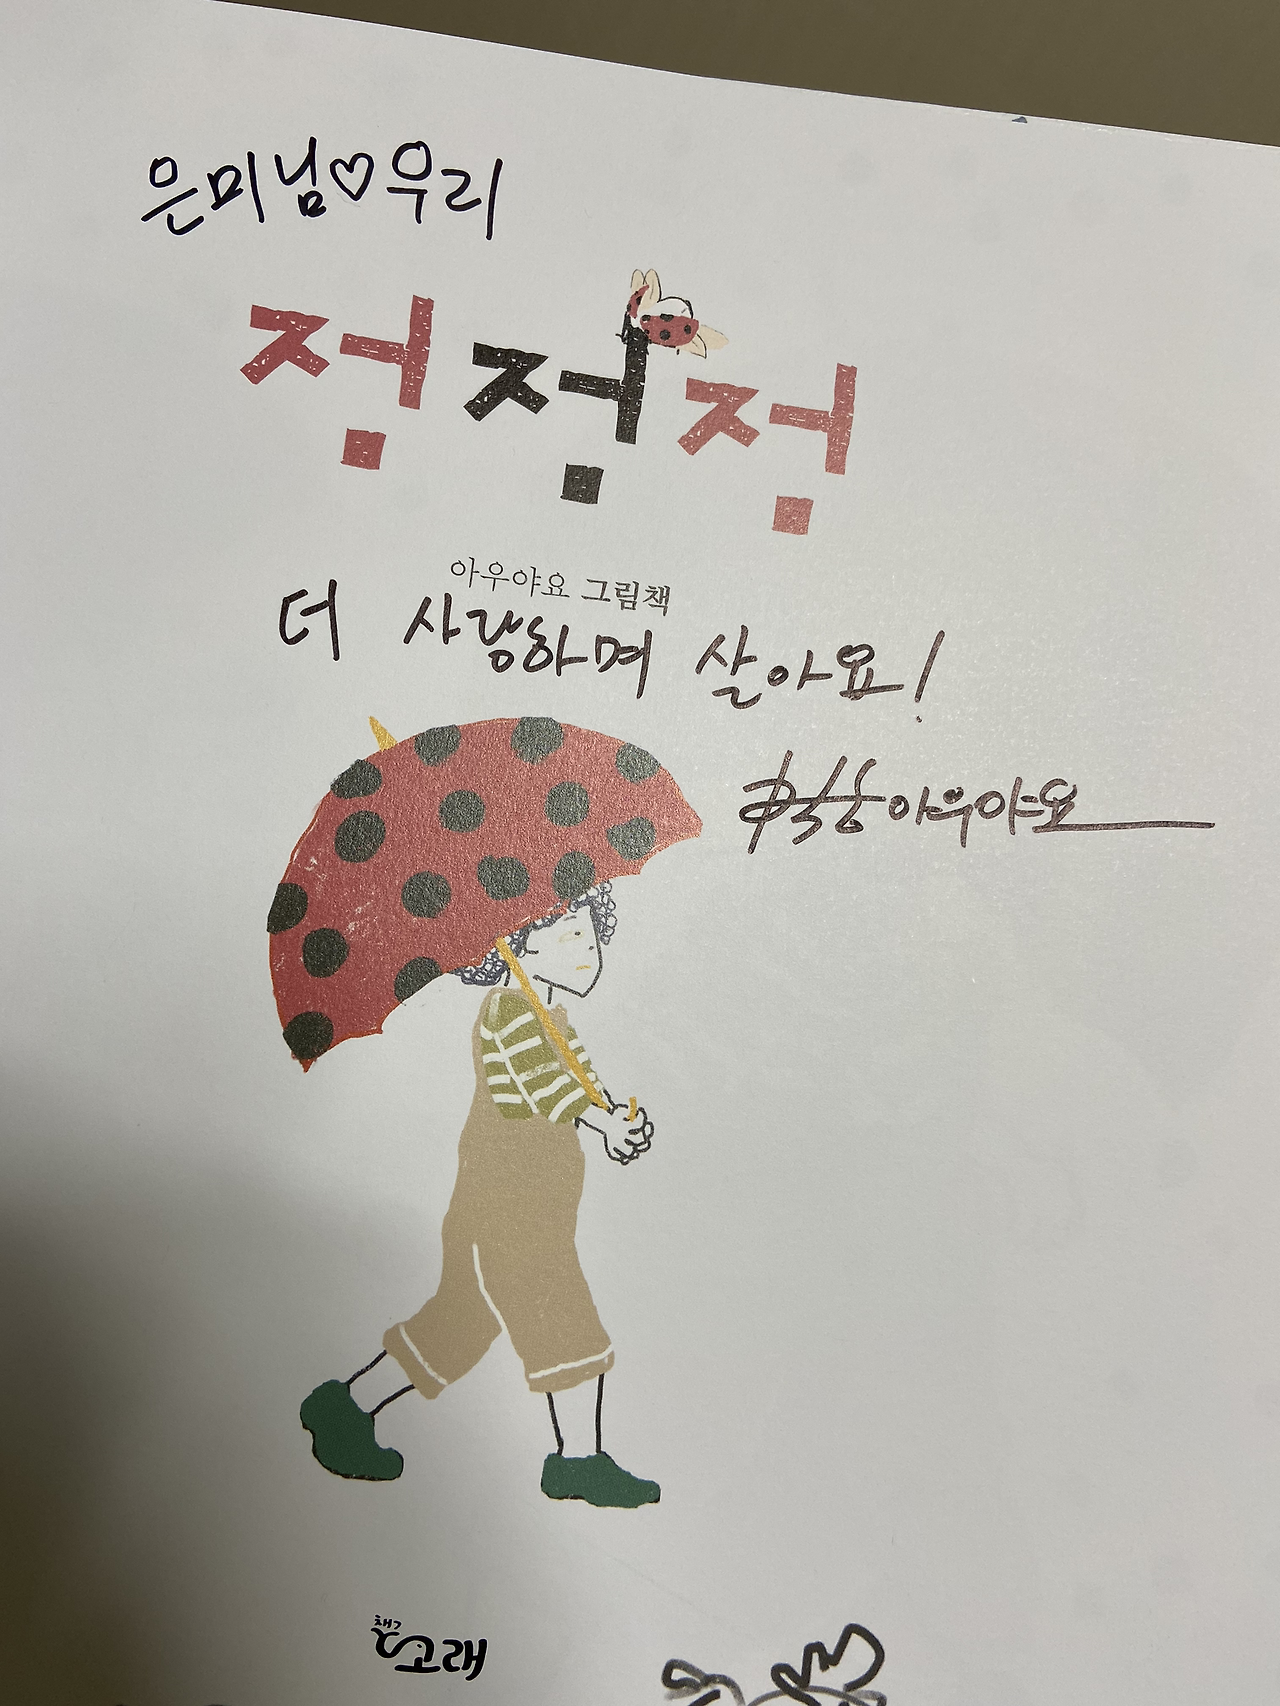 은미님♡우리
점점점
아우야요 그림책
더 사랑하며 살아요!
아우야요
책고래